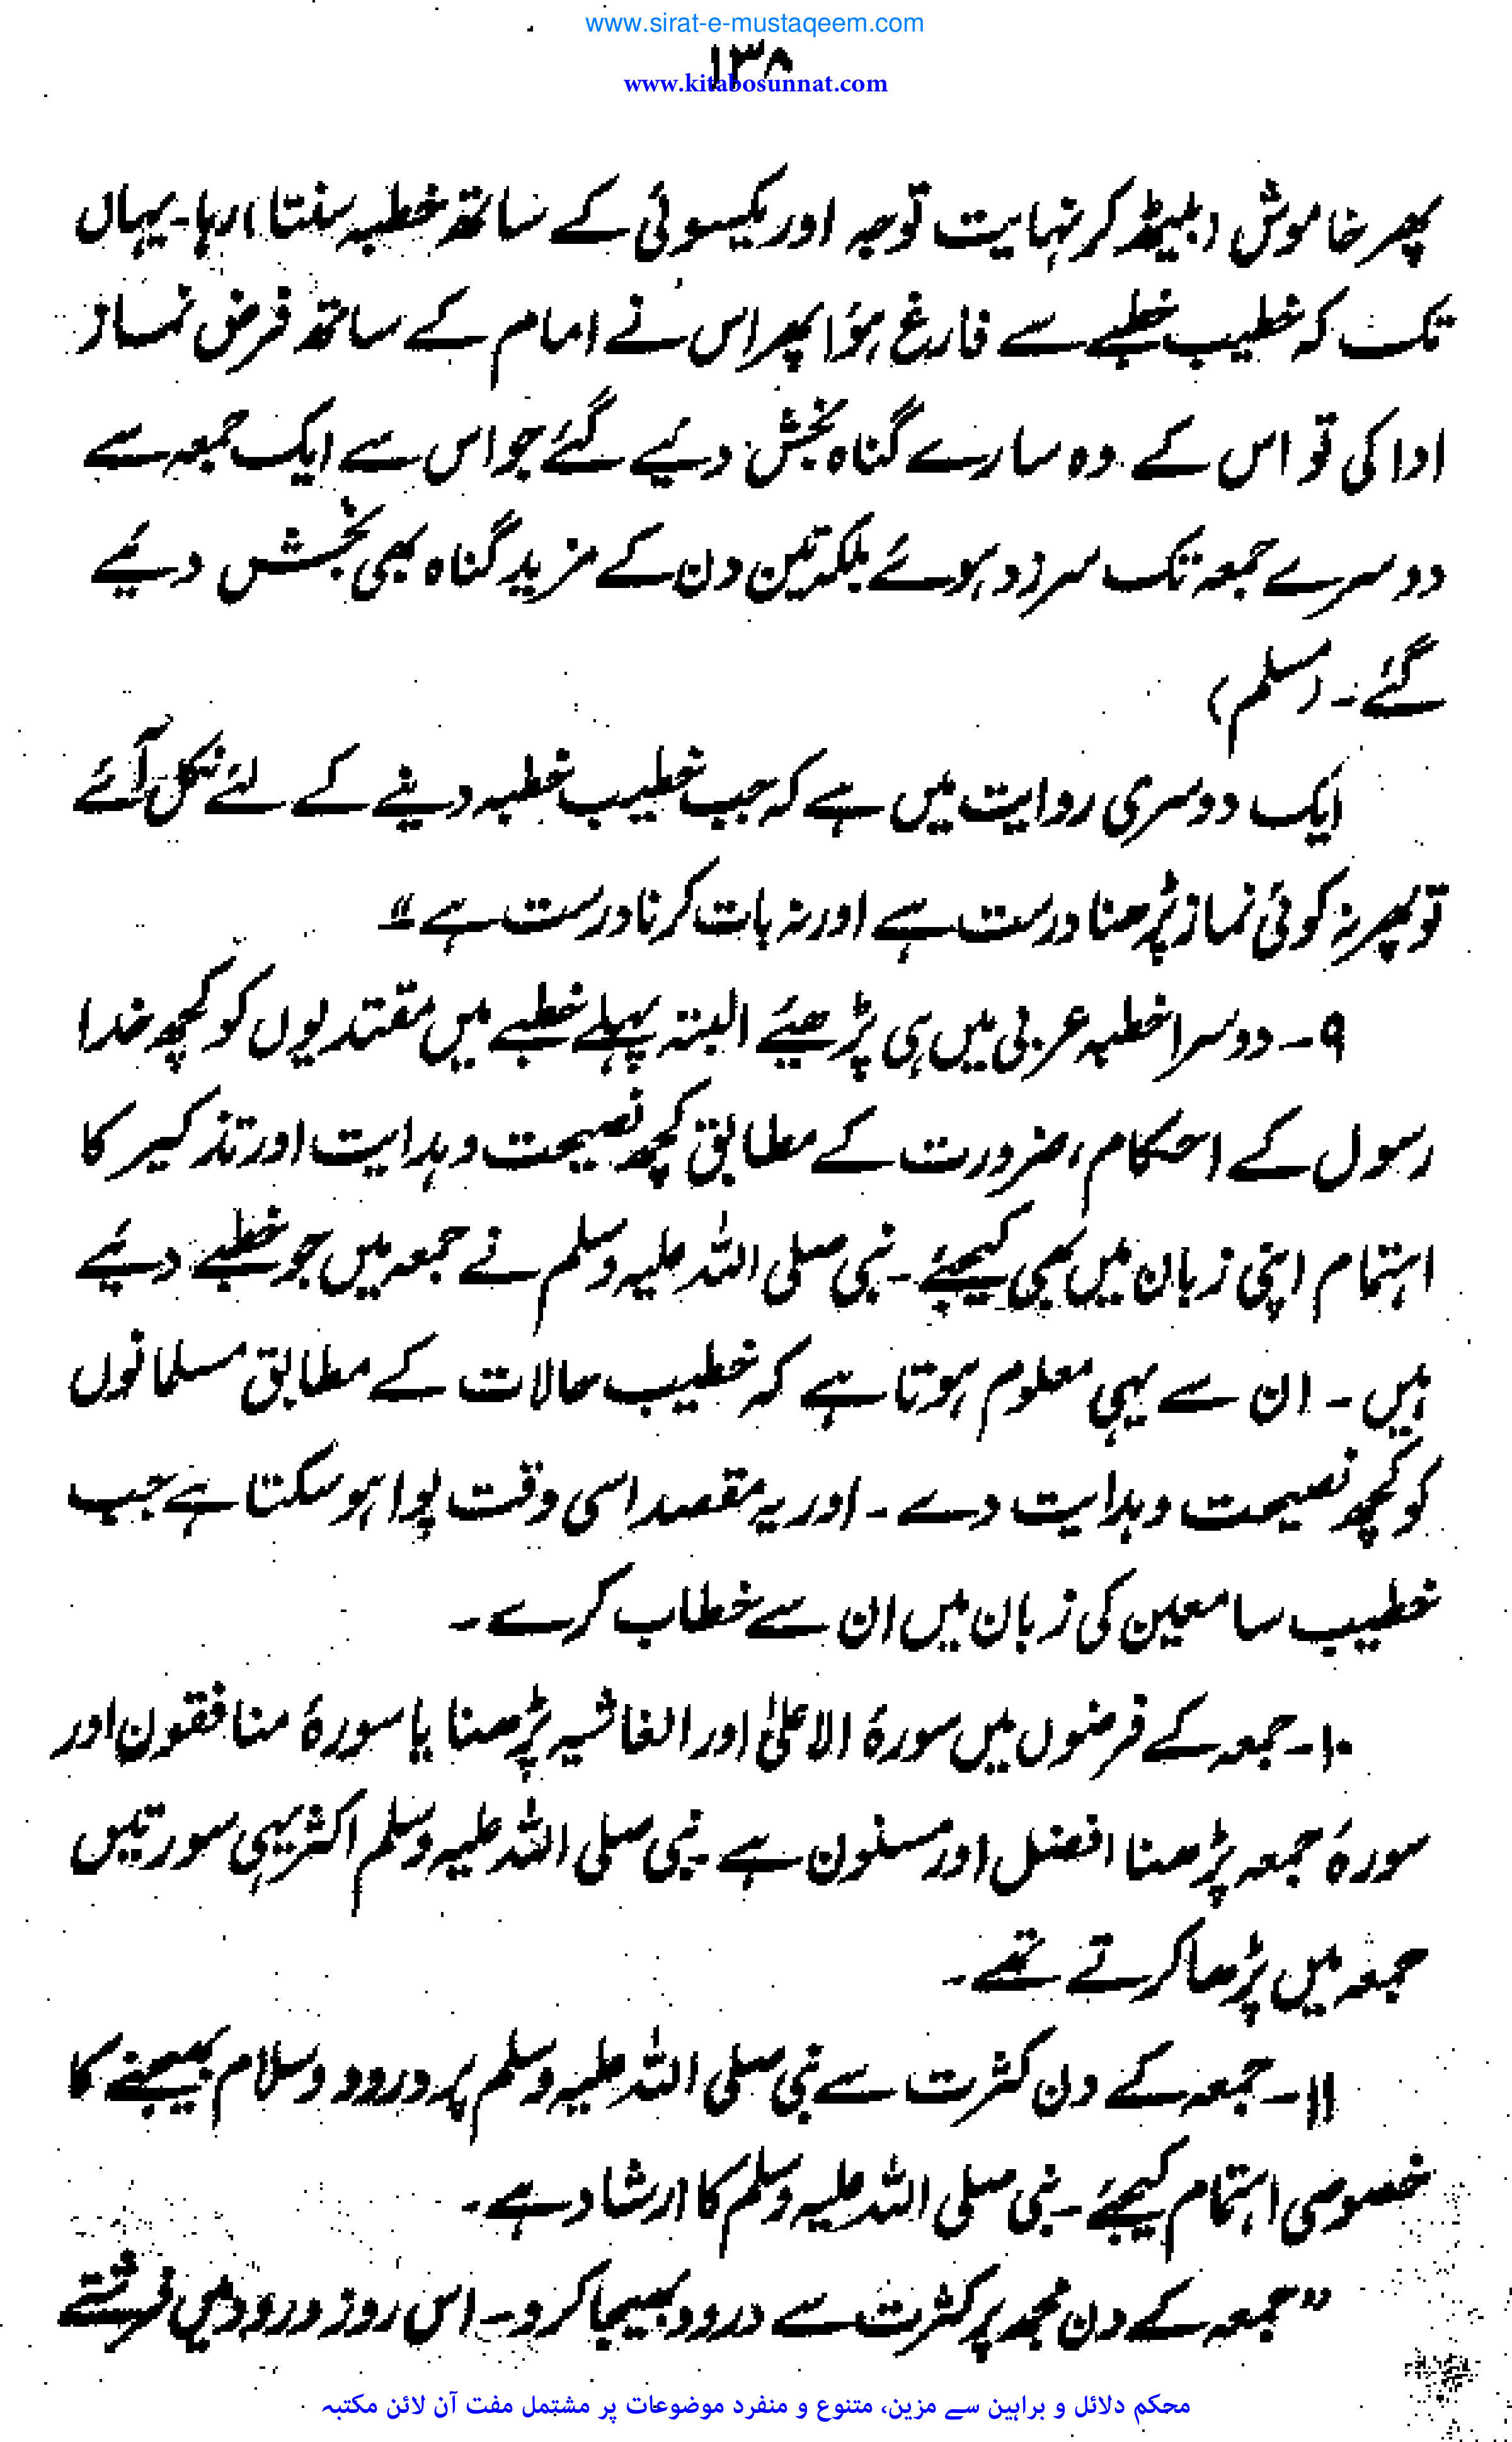 www.sirat-e-mustaqeem.com
۱۳۸
www.kitabosunnat.com
پھر خاموش (بیٹھ کر نہایت توجہ اور یکسوئی کے ساتھ خطبہ سنتا) رہا۔ یہاں
تک کہ خطیب خطبے سے فارغ ہؤا پھر اس نے امام کے ساتھ فرض نماز
ادا کی تو اس کے وہ سارے گناہ بخش دیے گئے جو اس سے ایک جمعہ سے
دوسرے جمعہ تک سرزد ہوئے بلکہ تین دن کے مزید گناہ بھی بخش دیئے
گئے۔ (مسلم)
ایک دوسری روایت میں ہے کہ جب خطیب خطبہ دینے کے لئے نکل آئے
تو پھر نہ کوئی نماز پڑھنا درست ہے اور نہ بات کرنا درست ہے۔"
۹۔ دوسرا خطبہ عربی میں ہی پڑھیئے البتہ پہلے خطبے میں مقتدیوں کو کچھ خدا
رسول کے احکام، ضرورت کے مطابق کچھ نصیحت و ہدایت اور تذکیر کا
اہتمام اپنی زبان میں بھی کیجئے۔ نبی صلی اللہ علیہ وسلم نے جمعہ میں جو خطبے دیئے
ہیں۔ ان سے یہی معلوم ہوتا ہے کہ خطیب حالات کے مطابق مسلمانوں
کو کچھ نصیحت و ہدایت دے۔ اور یہ مقصد اسی وقت پورا ہو سکتا ہے جب
خطیب سامعین کی زبان میں ان سے خطاب کرے۔
۱۰۔ جمعہ کے فرضوں میں سورۂ الاعلیٰ اور الغاشیہ پڑھنا یا سورۂ منافقون اور
سورۂ جمعہ پڑھنا افضل اور مسنون ہے نبی صلی اللہ علیہ وسلم اکثر یہی سورتیں
جمعہ میں پڑھا کرتے تھے۔
۱۱۔ جمعہ کے دن کثرت سے نبی صلی اللہ علیہ وسلم پر درود و سلام بھیجنے کا
خصوصی اہتمام کیجئے۔ نبی صلی اللہ علیہ وسلم کا ارشاد ہے۔
"جمعہ کے دن مجھ پر کثرت سے درود بھیجا کرو۔ اس روز درود میں فرشتے
محکم دلائل و براہین سے مزین، متنوع و منفرد موضوعات پر مشتمل مفت آن لائن مکتبہ